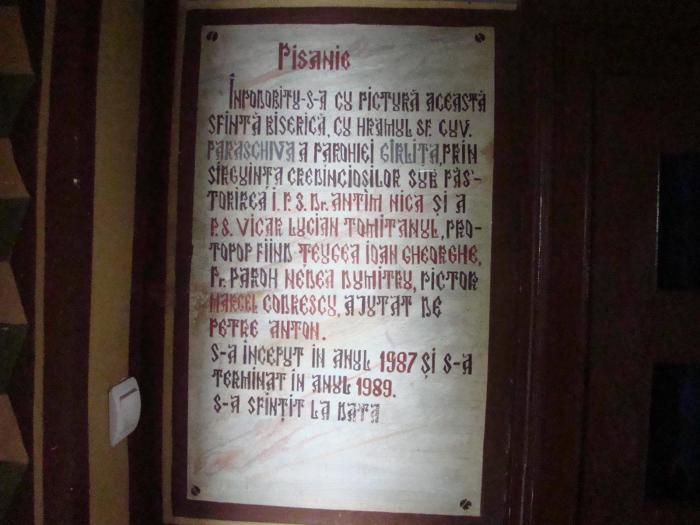 Pisanie
Înpodobitu-s-a cu pictură această
sfîntă biserică, cu hramul sf. cuv.
Paraschiva a parohiei Gîrlița, prin
sîrguința credincioșilor sub păs-
torirea I.P.S. Dr. Antim Nica și a
P.S. Vicar Lucian Tomitanul, pro-
topop fiind Țeugea Ioan Gheorghe,
Pr. Paroh Nedea Dumitru, pictor
Marcel Codrescu, ajutat de
Petre Anton.
S-a început în anul 1987 și s-a
terminat în anul 1989.
S-a sfințit la data